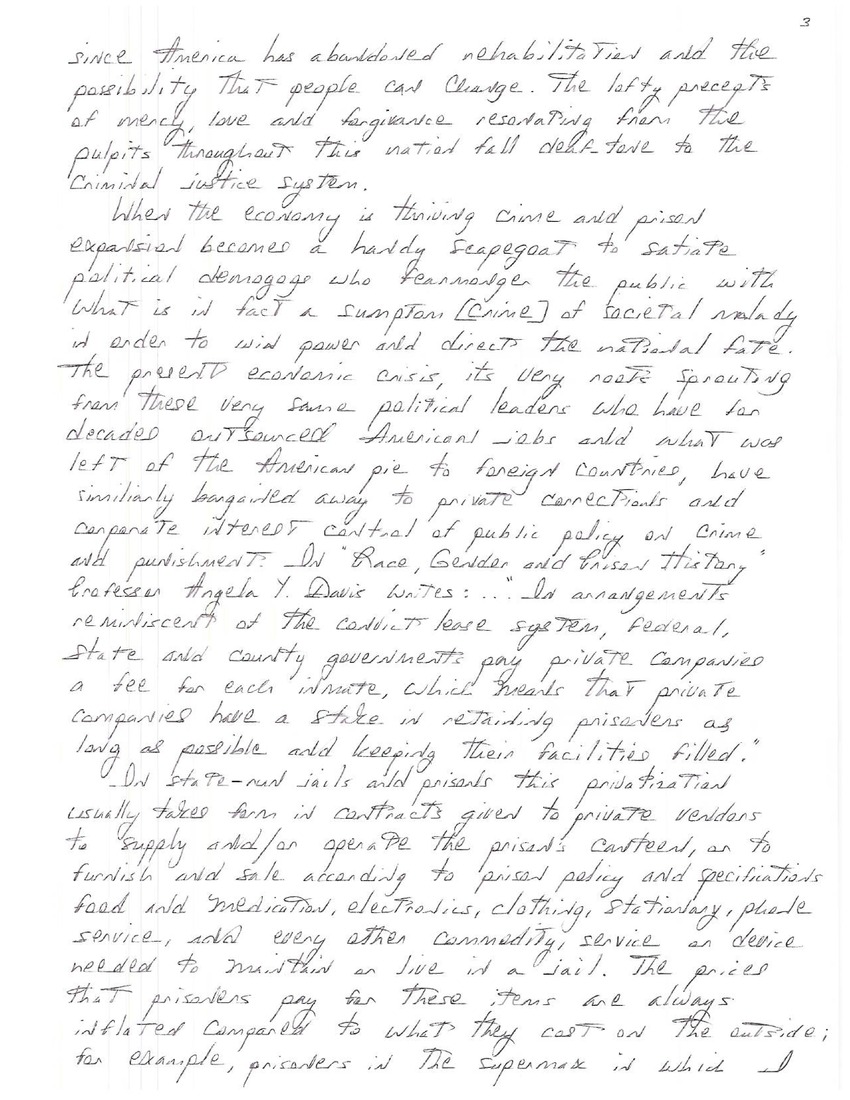 3
since America has abandoned rehabilitation and the
possibility that people can Change. The lofty precepts
of mercy, love and forgivance resonating from the
pulpits throughout this nation fall deaf-tone to the
Criminal justice system.
When the economy is thriving crime and prison
expansion becomes a handy scapegoat to satiate
political demogogs who fearmonger the public with
what is in fact a sumptom [Crime] of societal malady
in order to win power and direct the national fate.
The present economic crisis, its very roots sprouting
from these very same political leaders who have for
decades outsourced American jobs and what was
left of the American pie to foreign countries, have
similiarly bargained away to private corrections and
corporate interest control of public policy on Crime
and punishment. In "Race, Gender and Prison History"
Professor Angela Y. Davis writes: ..." In arrangements
reminiscent of the convict lease system, federal,
state and county governments pay private companies
a fee for each inmate, which means that private
companies have a stake in retaining prisoners as
long as possible and keeping their facilities filled."
In state-run jails and prisons this privatization
usually takes form in contracts given to private vendors
to supply and/or operate the prison's canteen, or to
furnish and sale according to prison policy and specifications
food and medication, electronics, clothing, stationary, phone
service, and every other commodity, service or device
needed to maintain or live in a jail. The prices
that prisoners pay for these items are always
inflated Compared to what they cost on the outside;
for example, prisoners in the supermax in which I